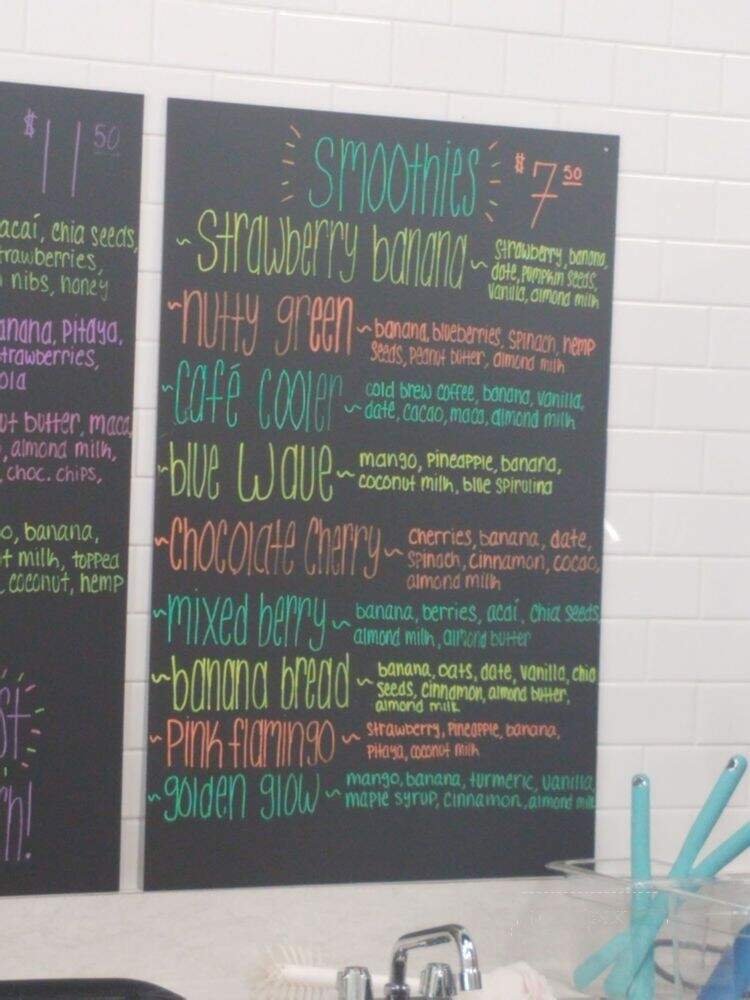 $11 50
acaí, chia seeds,
trawberries,
nibs, honey
anana, pitaya,
trawberries,
ola
ut butter, maca,
, almond milk,
choc. chips,
o, banana,
t milk, topped
coconut, hemp
st
h!
smoothies $7 50
~strawberry banana~ strawberry, banana,
date, pumpkin seeds,
vanilla, almond milk
~nutty green~ banana, blueberries, spinach, hemp
seeds, peanut butter, almond milk
~café cooler~ cold brew coffee, banana, vanilla,
date, cacao, maca, almond milk
~blue wave~ mango, pineapple, banana,
coconut milk, blue spirulina
~chocolate cherry~ cherries, banana, date,
spinach, cinnamon, cacao,
almond milk
~mixed berry~ banana, berries, acaí, chia seeds
almond milk, almond butter
~banana bread~ banana, oats, date, vanilla, chia
seeds, cinnamon, almond butter,
almond milk
~pink flamingo~ strawberry, pineapple, banana,
pitaya, coconut milk
~golden glow~ mango, banana, turmeric, vanilla,
maple syrup, cinnamon, almond milk